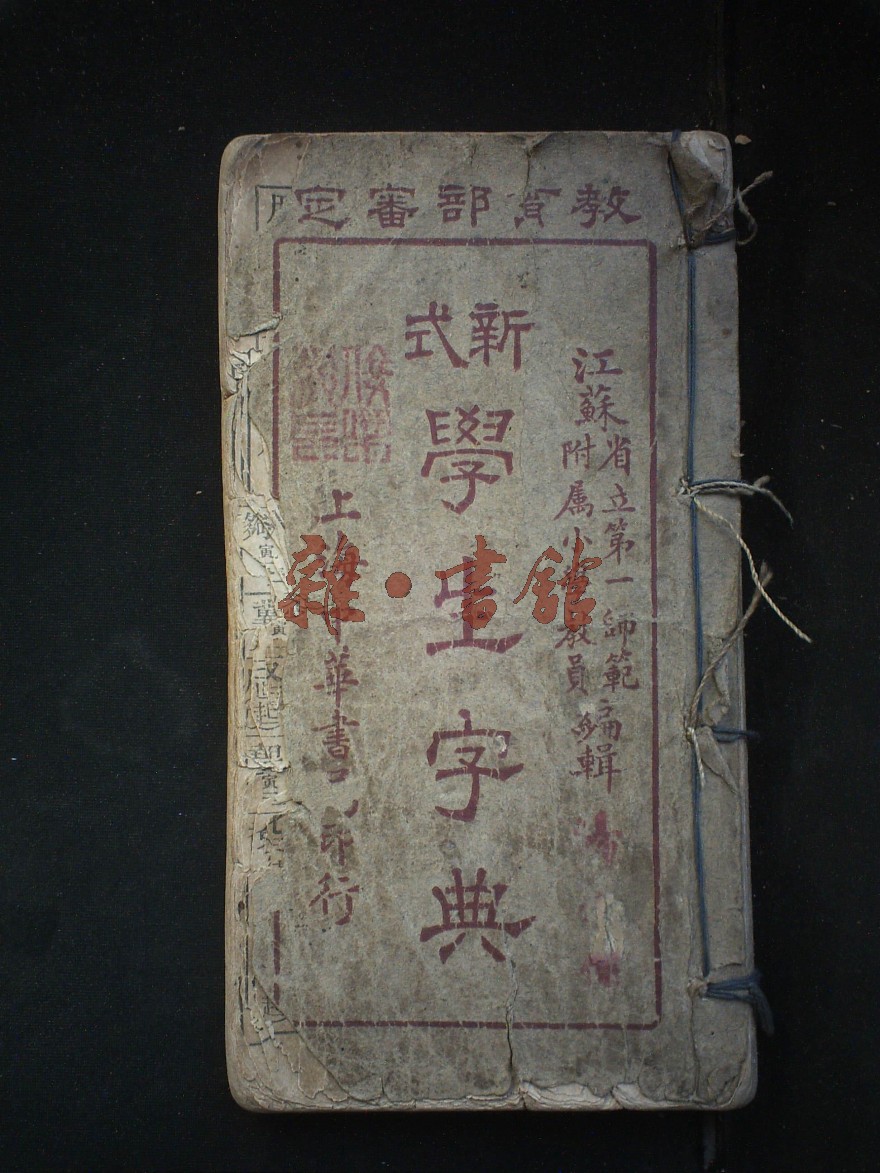 教育部審定
江蘇省立第一師範
附属小學教員
編輯
新式
學生字典
上海中華書局印行
雜·書館